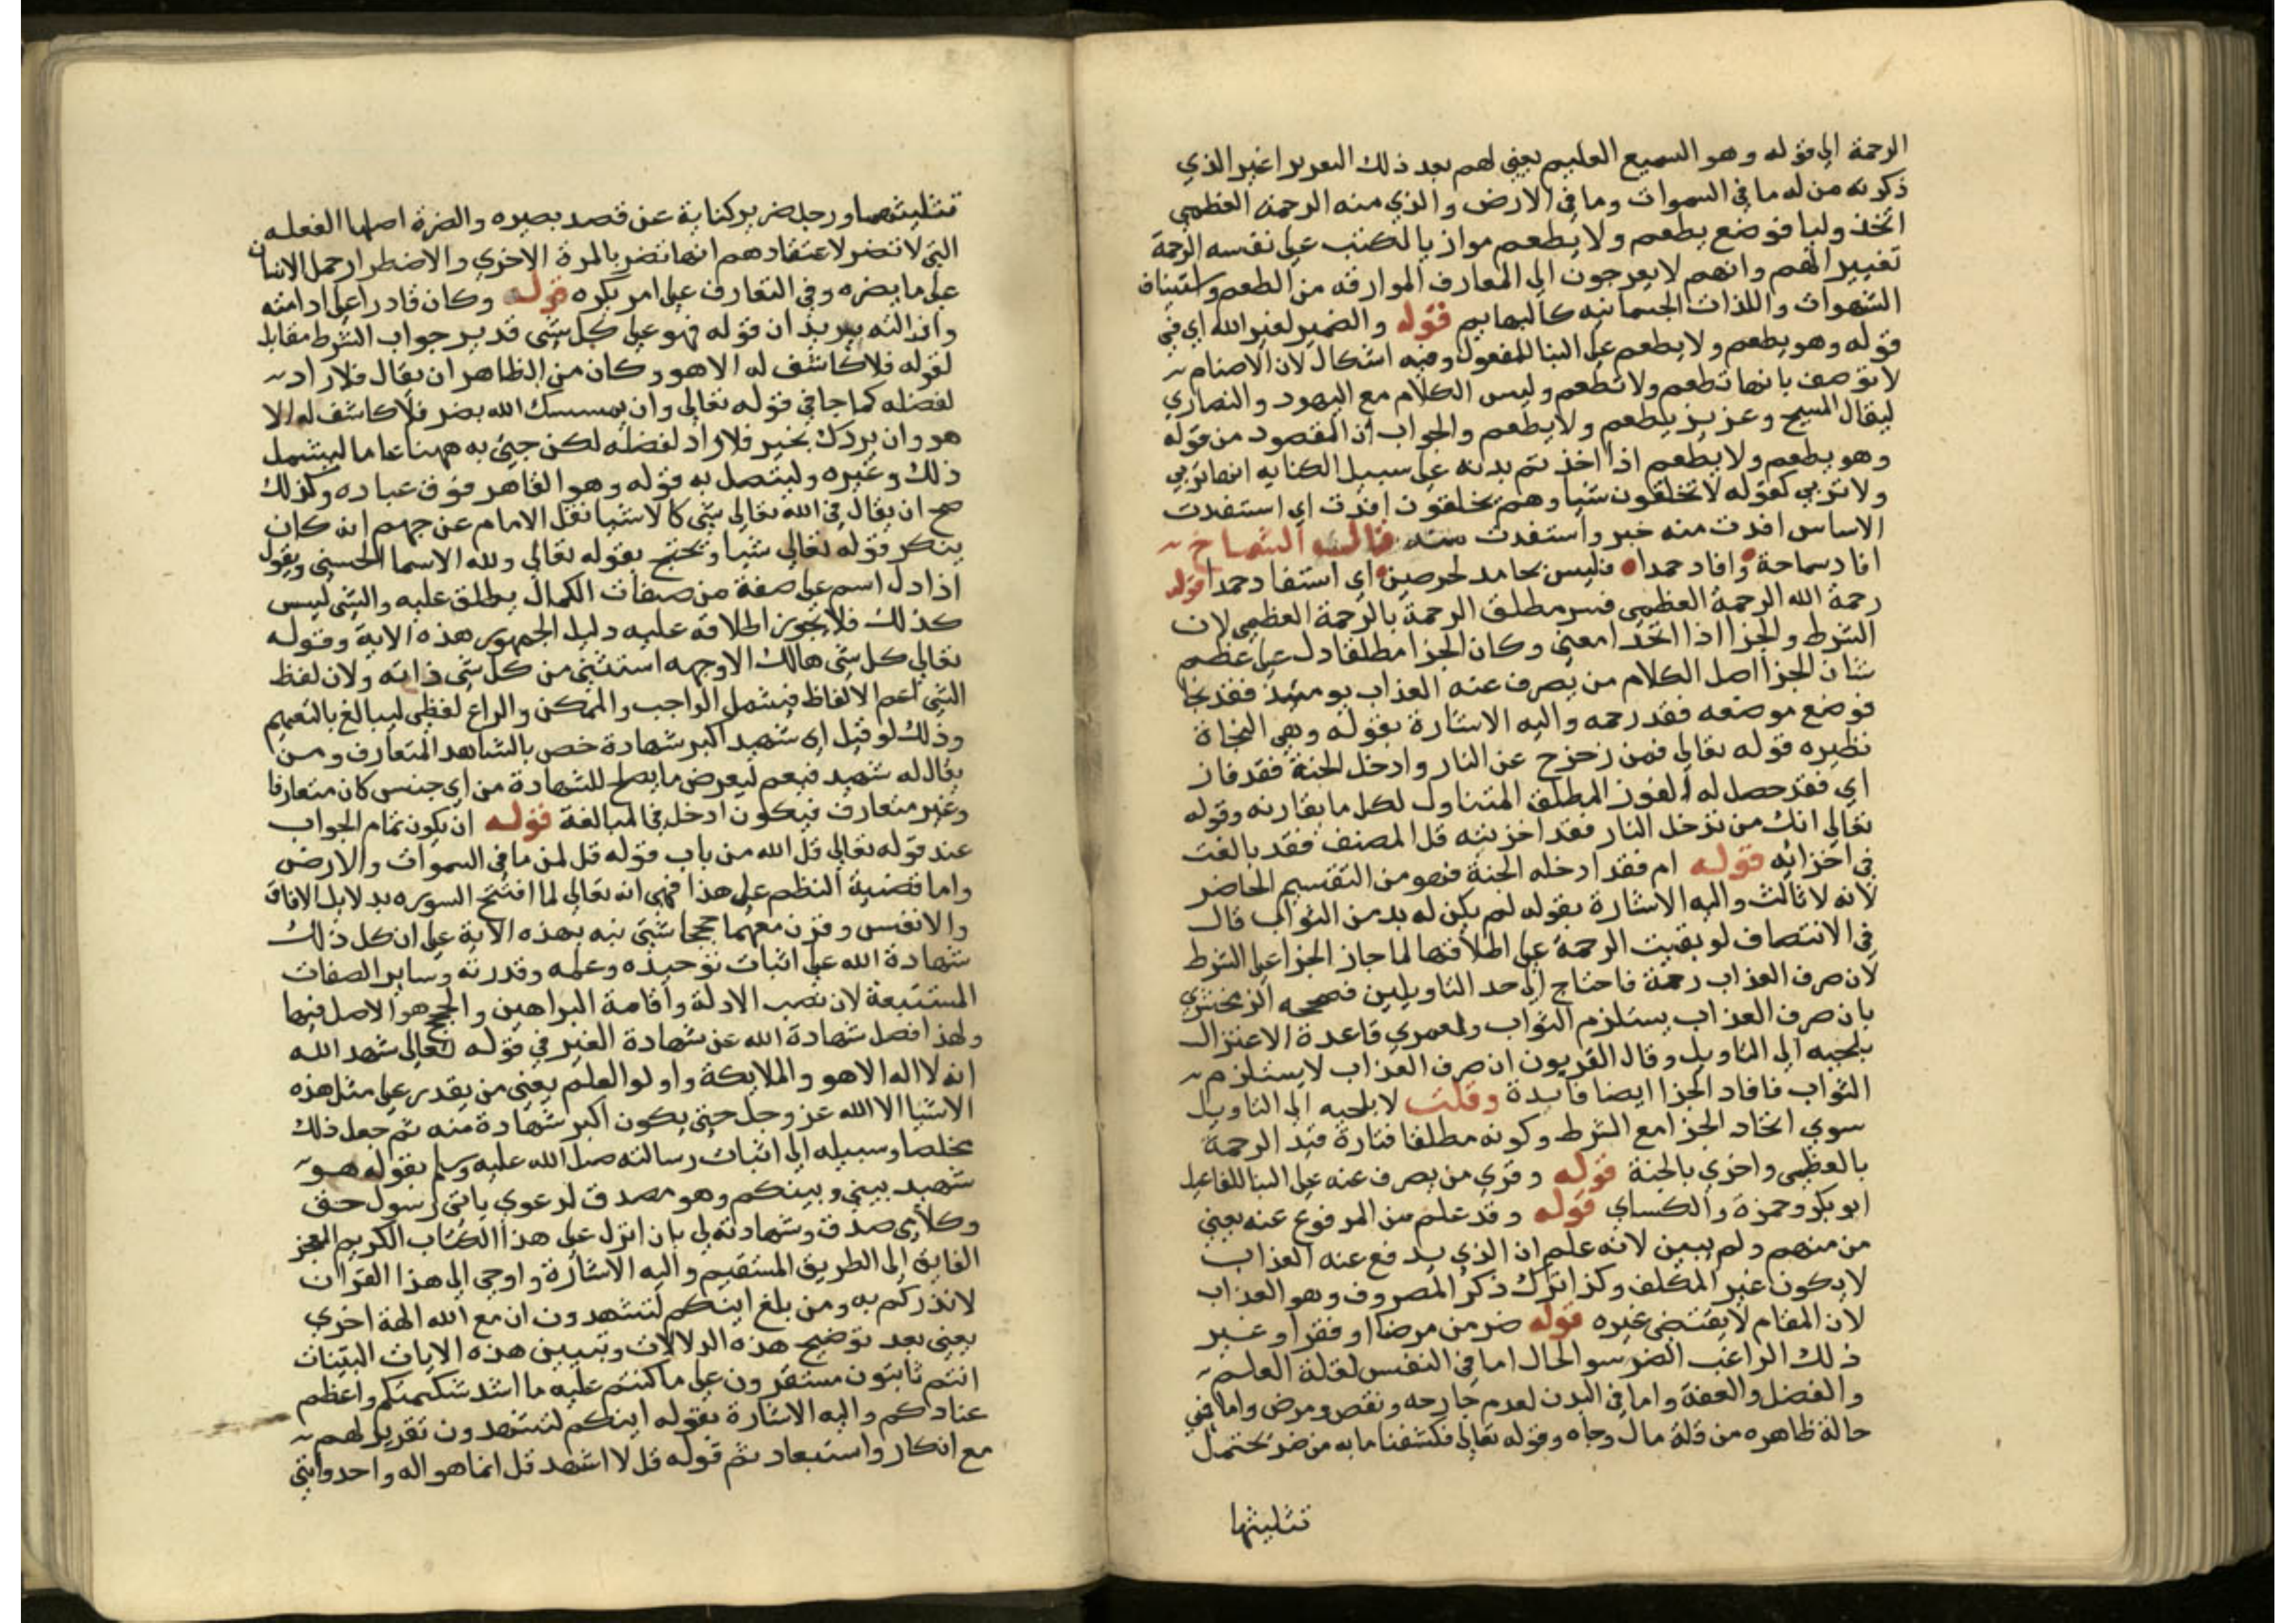 الرحمة الى قوله وهو السميع العليم يعني لهم بعد ذلك التعريرا غير الذي
ذكرته من له ما في السموات وما في الارض والذي منه الرحمة العظمى
اتخذ وليا فوضع يطعم ولا يطعم موازيا لكتب على نفسه الرحمة
تعييرا لهم وانهم لا يعرجون الى المعارف الموارقه من الطعم واستيناف
الشهوات واللذات الجسمانيه كالبهايم قوله والضمير لغير الله اي في
قوله وهو يطعم ولا يطعم على البنا للمفعول وفيه اشكال لان الاصنام
لا توصف بانها تطعم ولا تطعم وليس الكلام مع اليهود والنصاري
ليقال المسيح وعزيز يطعم ولا يطعم والجواب ان المقصود من قوله
وهو يطعم ولا يطعم اذا اخذ بتم بدنه على سبيل الكنايه انها تربي
ولا تربي كقوله لا تخلقون شيا وهم يخلقون افدت اي استفدت
الاساس افدت منه خير واستفدت منه قال الشماخ
افاد سماحة وافاد حمدا فليس بحامد لحرصين اي استفاد حمدا قوله
رحمة الله الرحمة العظمى فسر مطلق الرحمة بالرحمة العظمى لان
الشرط والجزا اذا اتحدا معني وكان الجزا مطلقا دل على عظم
شان الجزا اصل الكلام من يصرف عنه العذاب يومئذ فقد نجا
فوضع موضعه فقد رحمه واليه الاشارة بقوله وهي النجاة
نظيره قوله تعالي فمن زحزح عن النار وادخل الجنة فقد فاز
اي فقد حصل له الفوز المطلق المتناول لكل ما يقارنه وقوله
تعالي انك من تدخل النار فقد اخزيته قل المصنف فقد بالغت
في اخزائه قوله ام فقد ادخله الجنة فهو من التقسيم الحاضر
لانه لا ثالث واليه الاشارة بقوله لم يكن له بد من الثواب قال
في الانتصاف لو بقيت الرحمة على اطلاقها لما جاز الجزا على الشرط
لان صرف العذاب رحمة فاحتاج الى احد التاويلين فصححه الزمخشري
بان صرف العذاب يستلزم الثواب ولعمري قاعدة الاعتزال
يلجيه الى التاويل وقال القريون ان صرف العذاب لا يستلزم
الثواب فافاد الجزا ايضا فايدة وقلت لا يلجيه الى التاويل
سوي اتحاد الجزا مع الشرط وكونه مطلقا فتارة قيد الرحمة
بالعظمى واخري بالجنة قوله وقري من يصرف عنه على البنا للفاعل
ابو بكر وحمزة والكساي قوله وقد علم من المرفوع عنه يعني
من منهم ولم يبين لانه علم ان الذي يدفع عنه العذاب
لا يكون غير المكلف وكذا ترك ذكر المصروف وهو العذاب
لان المقام لا يقتضي غيره قوله ضر من مرض او فقر او غير
ذلك الراغب الضر سو الحال اما في النفس لقلة العلم
والفضل والعفة واما في البدن لعدم جارحه ونقص ومرض واما في
حالة ظاهره من قلة مال وجاه وقوله تعالي فكشفنا ما به من ضر يحتمل
تثليثها
تثليثها ورجل ضرير كناية عن قصد بصيره والضرة اصلها الفعله
التي لا تضر لاعتقادهم انها تضر بالمرة الاخري والاضطرار حمل الانسان
على ما يضره وفي التعارف على امر يكره قوله وكان قادرا على ادامته
وازالته يريد ان قوله فهو على كل شي قدير جواب الشرط مقابل
لقوله فلا كاشف له الا هو وكان من الظاهر ان يقال فلا راد
لفضله كما جا في قوله تعالي وان يمسسك الله بضر فلا كاشف له الا
هو وان يردك بخير فلا راد لفضله لكن جيئ به ههنا عاما ليشمل
ذلك وغيره وليتصل به قوله وهو القاهر فوق عباده وكذلك
صح ان يقال في الله تعالي شي كالاشيا نقل الامام عن جهم انه كان
ينكر قوله تعالي شيا ويحتج بقوله تعالي ولله الاسما الحسنى ويقول
اذا دل اسم على صفة من صفات الكمال يطلق عليه والشي ليس
كذلك فلا يجوز اطلاقه عليه دليل الجمهور هذه الاية وقوله
تعالي كل شي هالك الا وجهه استثني من كل شي ذاته ولان لفظ
الشي اعم الالفاظ فيشمل الواجب والممكن والراع لفظي ليبالغ بالتعميم
وذلك لو قيل اي شهيد اكبر شهادة خص بالشاهد المتعارف ومن
يقال له شهيد فيعم ليعرض ما يصلح للشهادة من اي جنس كان متعارفا
وغير متعارف فيكون ادخل في المبالغة قوله ان يكون تمام الجواب
عند قوله تعالي قل الله من باب قوله قل لمن ما في السموات والارض
واما قضية النظم على هذا فهي انه تعالي لما افتتح السوره بدلايل الافاق
والانفس وقرن معهما حججا شتى نبه بهذه الاية على ان كل ذلك
شهادة الله على اثبات توحيده وعلمه وقدرته وساير الصفات
المستتبعة لان نصب الادلة واقامة البراهين والحجج هو الاصل فيها
ولهذا فصل شهادة الله عن شهادة الغير في قوله تعالي شهد الله
انه لا اله الا هو والملايكة واولوا العلم يعني من يقدر على مثل هذه
الاشيا الا الله عز وجل حتى يكون اكبر شهادة منه ثم جعل ذلك
مخلصا وسبيله الى اثبات رسالته صلى الله عليه وسلم بقوله هو
شهيد بيني وبينكم وهو مصدق لدعوي باني رسول حق
وكلامي صدق وشهادته لي بان انزل علي هذا الكتاب الكريم المعجز
الفايق الى الطريق المستقيم واليه الاشارة واوحي الى هذا القران
لانذركم به ومن بلغ اينكم لتشهدون ان مع الله الهة اخري
يعني بعد توضيح هذه الدلالات وتبيين هذه الايات البينات
انتم ثابتون مستقرون على ما كنتم عليه ما اشد شكيمتكم واعظم
عنادكم واليه الاشارة بقوله اينكم لتشهدون تقرير لهم
مع انكار واستبعاد ثم قوله قل لا اشهد قل انما هو اله واحد وانني